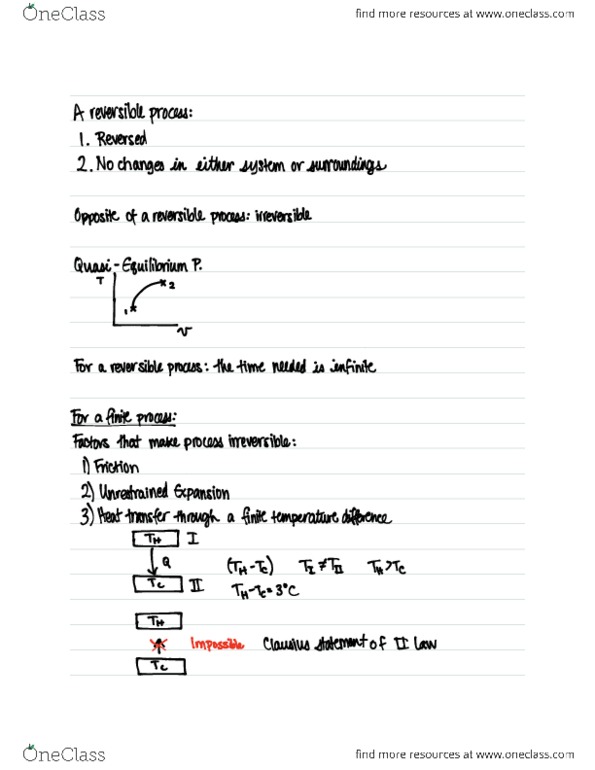 OneClass find more resources at www.oneclass.com
A reversible process:
1. Reversed
2. No changes in either system or surroundings
Opposite of a reversible process: irreversible
Quasi-Equilibrium P.
T
1 2
v
For a reversible process: the time needed is infinite
For a finite process:
Factors that make process irreversible:
1) Friction
2) Unrestrained Expansion
3) Heat transfer through a finite temperature difference
TH I
Q (TH-TC) TI≠TII TH>TC
TC II TH-TC=3°C
TH
Impossible Clausius statement of II Law
TC
OneClass find more resources at www.oneclass.com